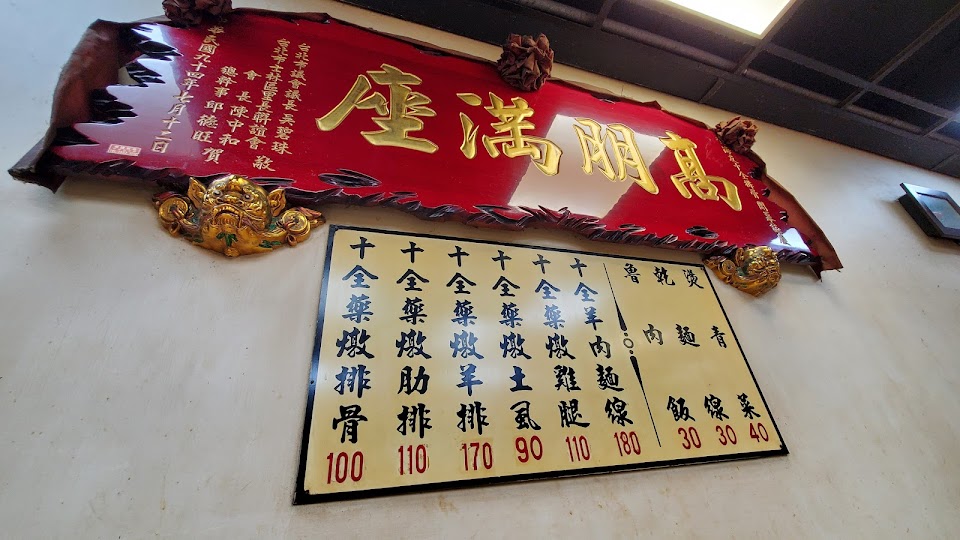 高朋滿座
台北市議會議長吳碧珠
台北市士林區里長聯誼會 敬
會長陳中和
總幹事邱德旺 賀
華民國九十四年七月十二日
十全藥燉排骨 100
十全藥燉肋排 110
十全藥燉羊排 170
十全藥燉土虱 90
十全藥燉雞腿 110
十全羊肉麵線 180
魯肉飯 30
乾麵線 30
燙青菜 40